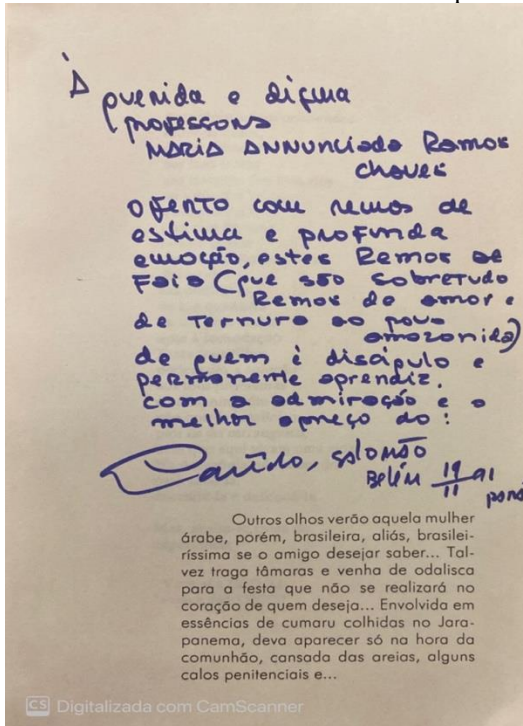 À querida e digna
professora
MARIA ANNUNCIADA Ramos
Chaves
OFERTO com remos de
estima e profunda
emoção, estes Remos de
Faia (que são sobretudo
Remos de amor e
de Ternura ao povo
amazonida)
de quem é discípulo e
permanente aprendiz.
com a admiração e o
melhor apreço do:
SALOMÃO
Belém 19 91
11 pará
Outros olhos verão aquela mulher
árabe, porém, brasileira, aliás, brasilei-
ríssima se o amigo desejar saber... Tal-
vez traga tâmaras e venha de odalisca
para a festa que não se realizará no
coração de quem deseja... Envolvida em
essências de cumaru colhidas no Jara-
panema, deva aparecer só na hora da
comunhão, cansada das areias, alguns
calos penitenciais e...
CS Digitalizada com CamScanner